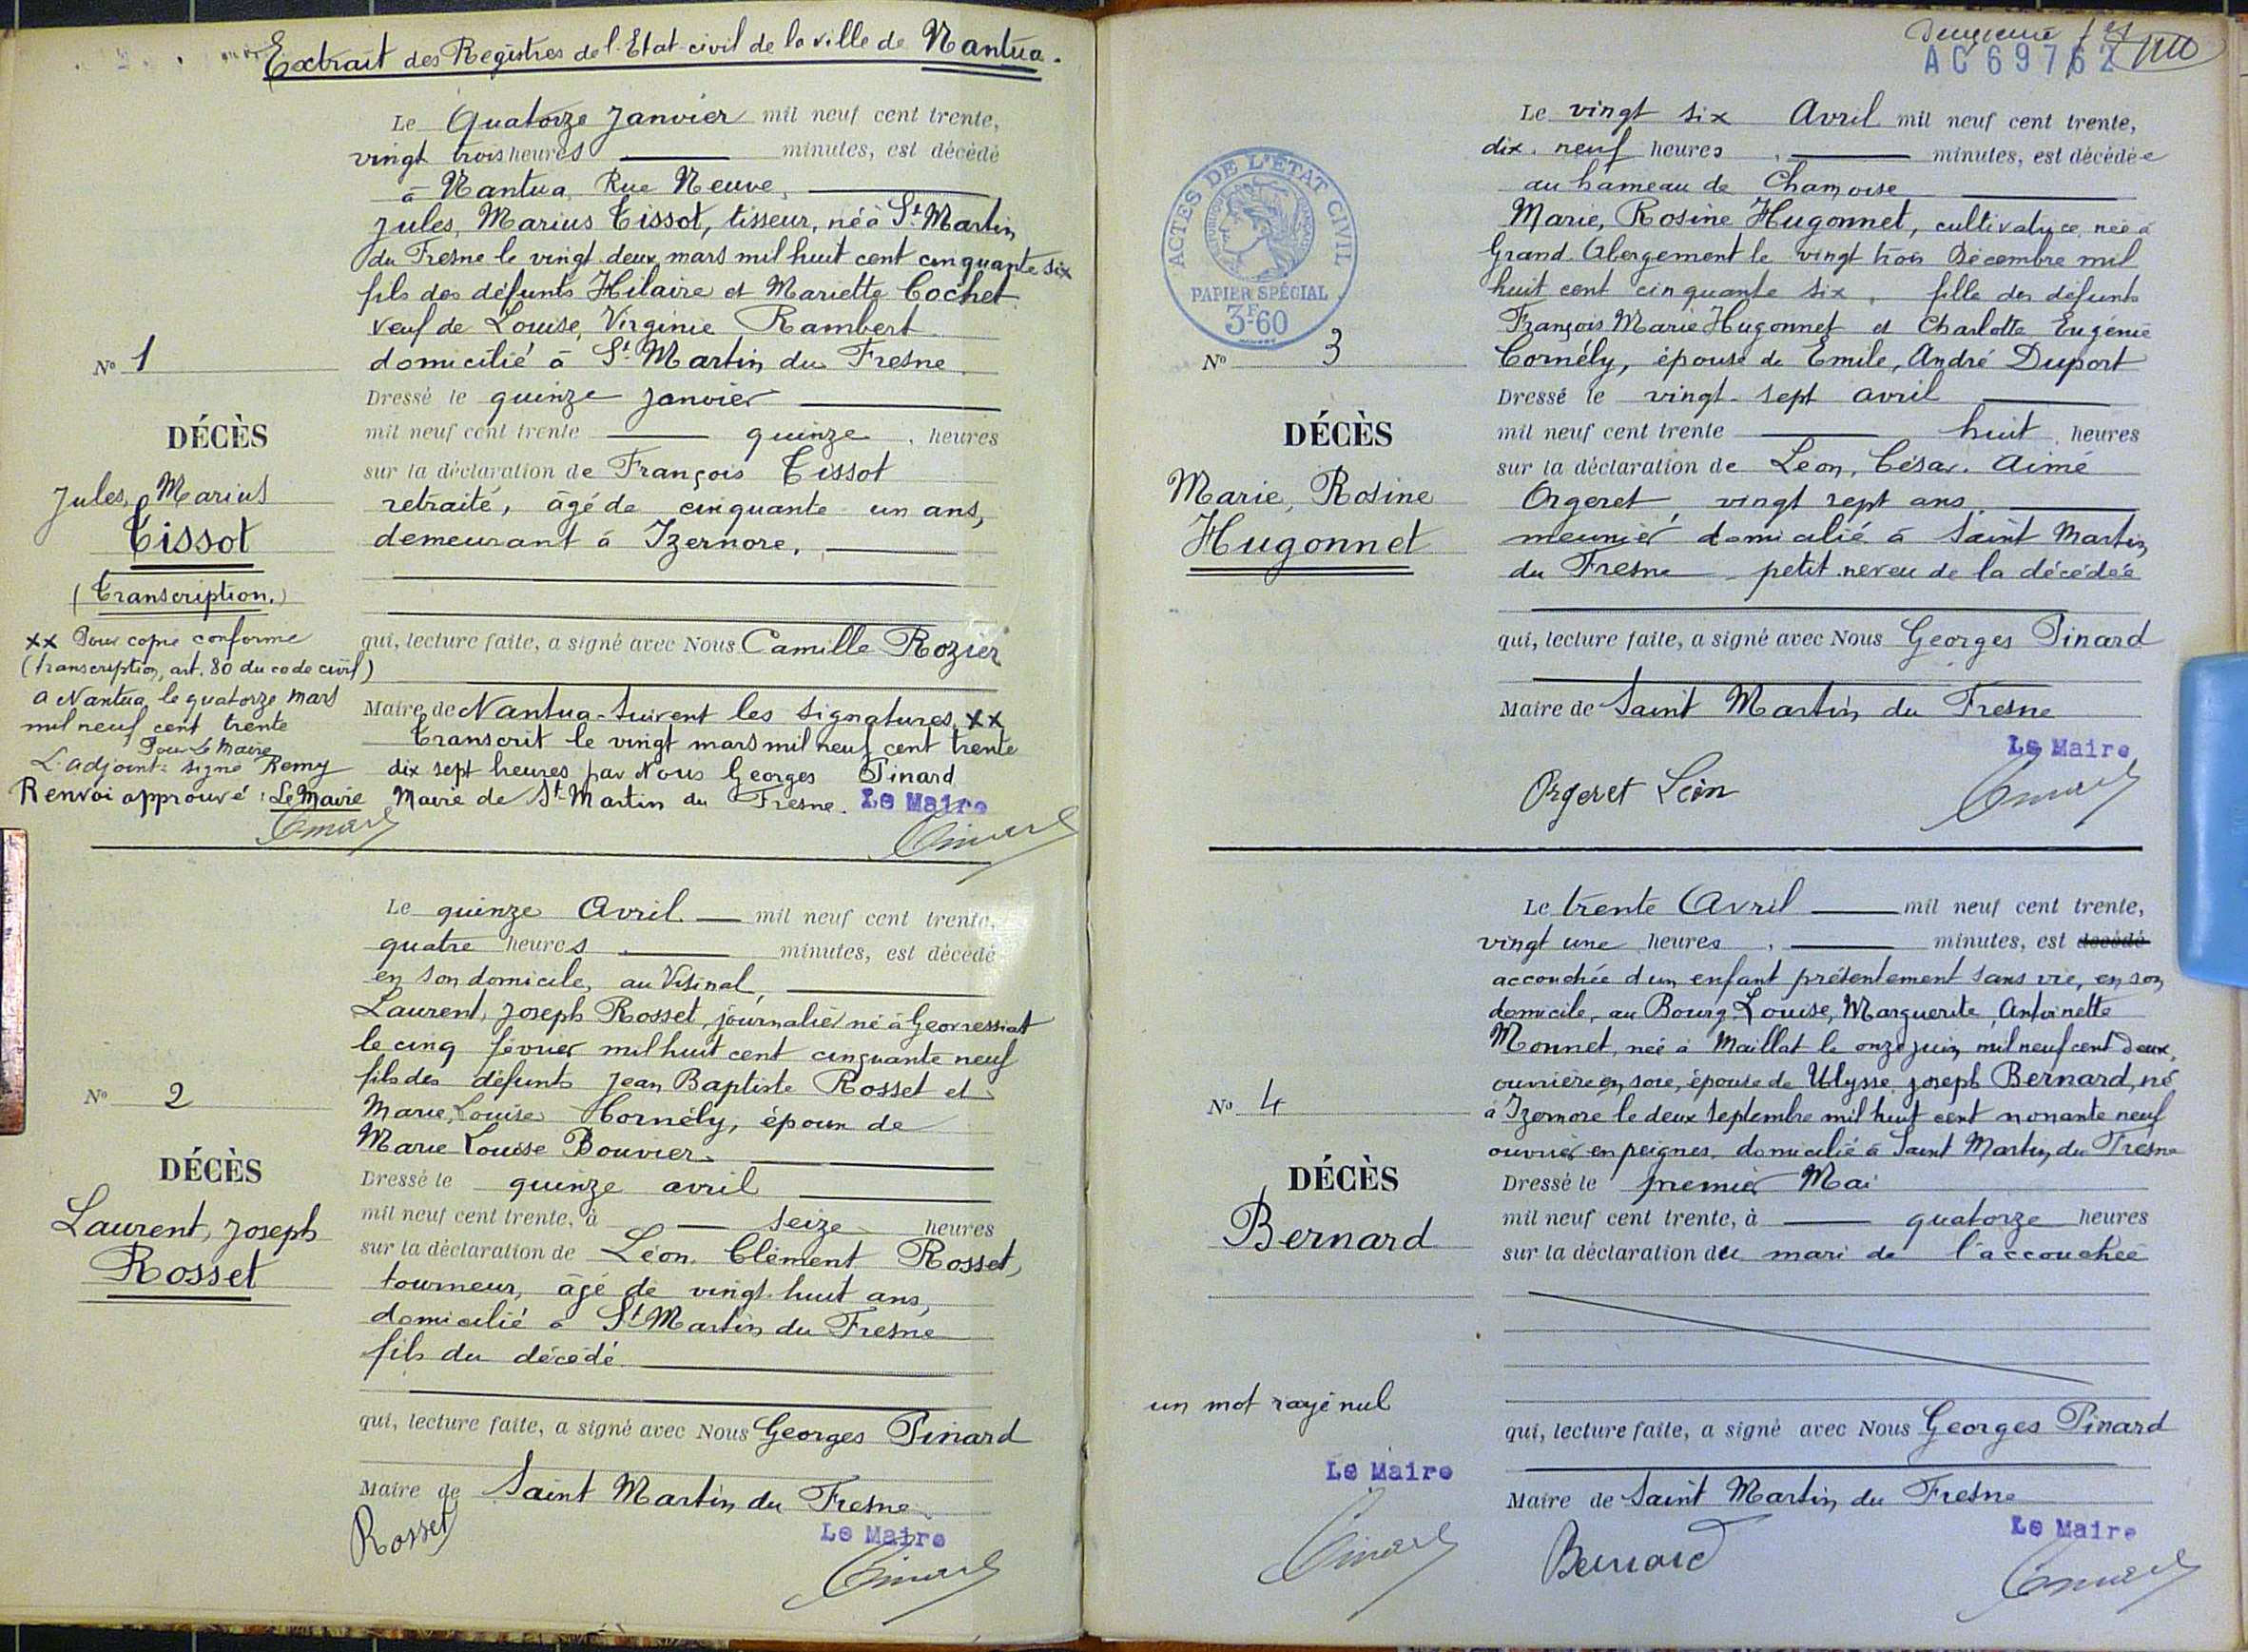 Extrait des Registres de l'Etat-civil de la ville de Nantua.
Le Quatorze Janvier mil neuf cent trente,
vingt trois heures minutes, est décédé
à Nantua, Rue Neuve,
Jules, Marius Tissot, tisseur, né à St. Martin
du Fresne le vingt deux mars mil huit cent cinquante six
fils des défunts Hilaire et Mariette Cochet
veuf de Louise, Virginie Rambert
domicilié à St. Martin du Fresne.
Dressé le quinze janvier
mil neuf cent trente quinze heures
sur la déclaration de François Tissot
retraité, âgé de cinquante un ans,
demeurant à Izernore,
qui, lecture faite, a signé avec Nous Camille Rozier
Maire de Nantua - Suivent les signatures xx
Transcrit le vingt mars mil neuf cent trente
dix sept heures par Nous Georges Pinard
Maire de St-Martin du Fresne. Le Maire
No 1
DÉCÈS
Jules, Marius
Tissot
(Transcription.)
xx Pour copie conforme
(transcription, art. 80 du code civil)
A Nantua, le quatorze mars
mil neuf cent trente
Pour Le Maire
L'adjoint: signé Remy
Renvoi approuvé: Le Maire
Pinard
Pinard
Le quinze Avril mil neuf cent trente,
quatre heures minutes, est décédé
en son domicile, au Visinal,
Laurent, Joseph Rosset, journalier né à Geovressiat
le cinq février mil huit cent cinquante neuf
fils des défunts Jean Baptiste Rosset et
Marie, Louise Cornély, époux de
Marie Louise Bouvier.
Dressé le quinze avril
mil neuf cent trente, à seize heures
sur la déclaration de Léon, Clément Rosset,
tourneur, âgé de vingt huit ans,
domicilié à St Martin du Fresne
fils du décédé
qui, lecture faite, a signé avec Nous Georges Pinard
Maire de Saint Martin du Fresne.
Le Maire
Rosset
Pinard
No 2
DÉCÈS
Laurent, Joseph
Rosset
AC 69762
ACTES DE L'ETAT CIVIL
PAPIER SPÉCIAL
3F60
Le vingt six Avril mil neuf cent trente,
dix. neuf heures minutes, est décédée
au hameau de Chamoise
Marie, Rosine Hugonnet, cultivatrice, née à
Grand Abergement le vingt trois Décembre mil
huit cent cinquante six, fille des défunts
François Marie Hugonnet et Charlotte Eugénie
Cornély, épouse de Emile, André Duport
Dressé le vingt-sept avril
mil neuf cent trente huit heures
sur la déclaration de Léon, César. Aimé
Orgeret, vingt sept ans.
meunier domicilié à Saint Martin
du Fresne petit neveu de la décédée
qui, lecture faite, a signé avec Nous Georges Pinard
Maire de Saint Martin du Fresne
Le Maire
Orgeret Léon
Pinard
No 3
DÉCÈS
Marie, Rosine
Hugonnet
Le trente Avril mil neuf cent trente,
vingt une heures minutes, est décédé
accouchée d'un enfant présentement sans vie, en son
domicile, au Bourg, Louise, Marguerite, Antoinette
Monnet, née à Maillat le onze juin mil neuf cent deux,
ouvrière en soie, épouse de Ulysse, Joseph Bernard, né
à Izernore le deux septembre mil huit cent nonante neuf
ouvrier en peignes, domicilié à Saint Martin du Fresne
Dressé le premier Mai
mil neuf cent trente, à quatorze heures
sur la déclaration du mari de l'accouchée
qui, lecture faite, a signé avec Nous Georges Pinard
Maire de Saint Martin du Fresne
Le Maire
Bernard
Pinard
No 4
DÉCÈS
Bernard
un mot rayé nul
Le Maire
Pinard